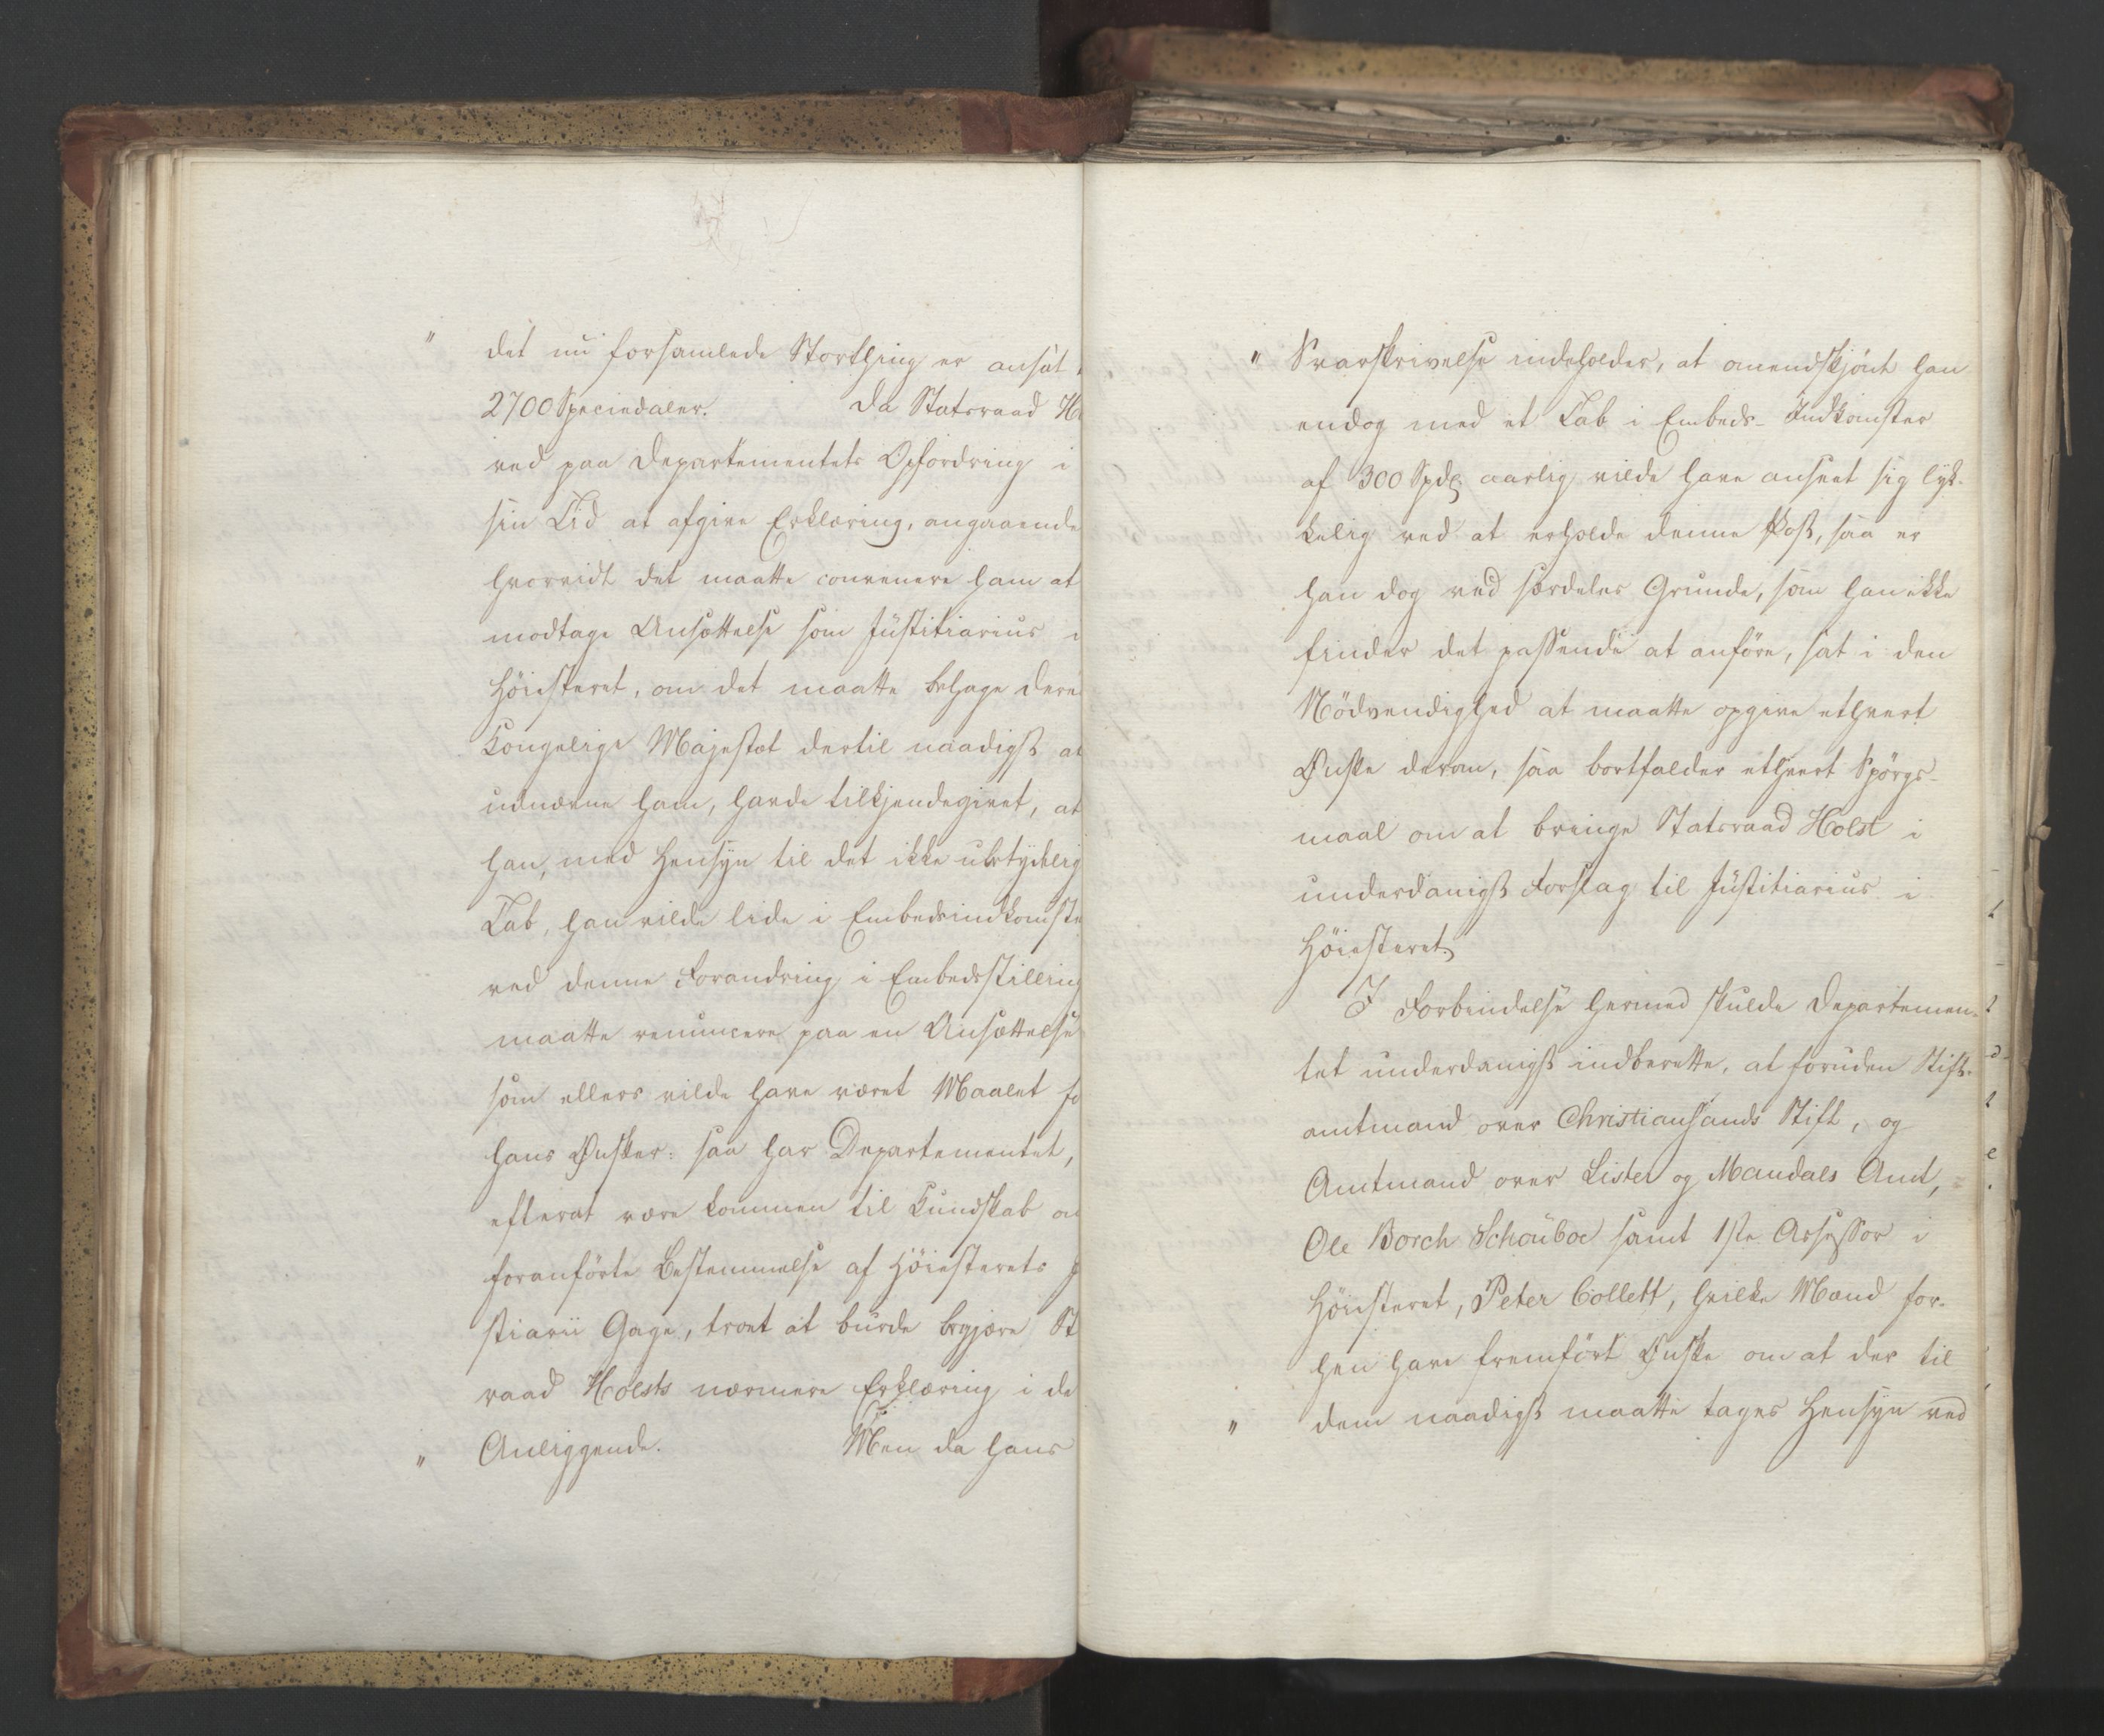 " det nu forsamlede Storthing er ansat
2700 Speciedaler. Da Statsraad
ved paa Departementets Opfordring i
sin Tid at afgive Erklæring, angaaende
hvorvidt det maatte convenere ham at
modtage Ansættelse som Justitiarius
Höiesteret, om det maatte behage
Kongelige Majestæt dertil naadigst at
udnævne ham, havde tilkjendegivet, at
han, med Hensyn til det ikke ubetydelig
Tab, han vilde lide i Embedsindkomste
ved denne Forandring i Embedsstilling
maatte renuncere paa en Ansættelse
som ellers vilde have været Maalet fo
hans Ønsker: saa har Departementet,
efterat være kommen til Kundskab
foranförte Bestemmelse af Höiesterets
stiarii Gage, troet at burde begjære St
raad Holsts nærmere Erklæring i de
" Anliggende. Men da hans
" Svarskrivelse indeholder, at omendskjönt han
endog med et Tab i Embeds- Indkomster
af 300 Spdlr aarlig vilde have anseet sig lyk-
kelig ved at erholde denne Post, saa er
han dog ved særdeles Grunde, som han ikke
finder det passende at anföre, sat i den
Nödvendighed at maatte opgive ethvert
Ønske derom, saa bortfalder ethvert Spörgs-
maal om at bringe Statsraad Holst i
underdanigst Forslag til Justitiarius i
Höiesteret.
I Forbindelse hermed skulde Departemen-
tet underdanigst indberette, at foruden Stift-
amtmand over Christiansands Stift, og
Amtmand over Lister og Mandals Amt,
Ole Borch Schouboe samt 1ste Assessor i
Höiesteret, Peter Collett, hvilke Mænd for-
hen have fremfört Ønske om at der til
" dem naadigst maatte tages Hensyn ved